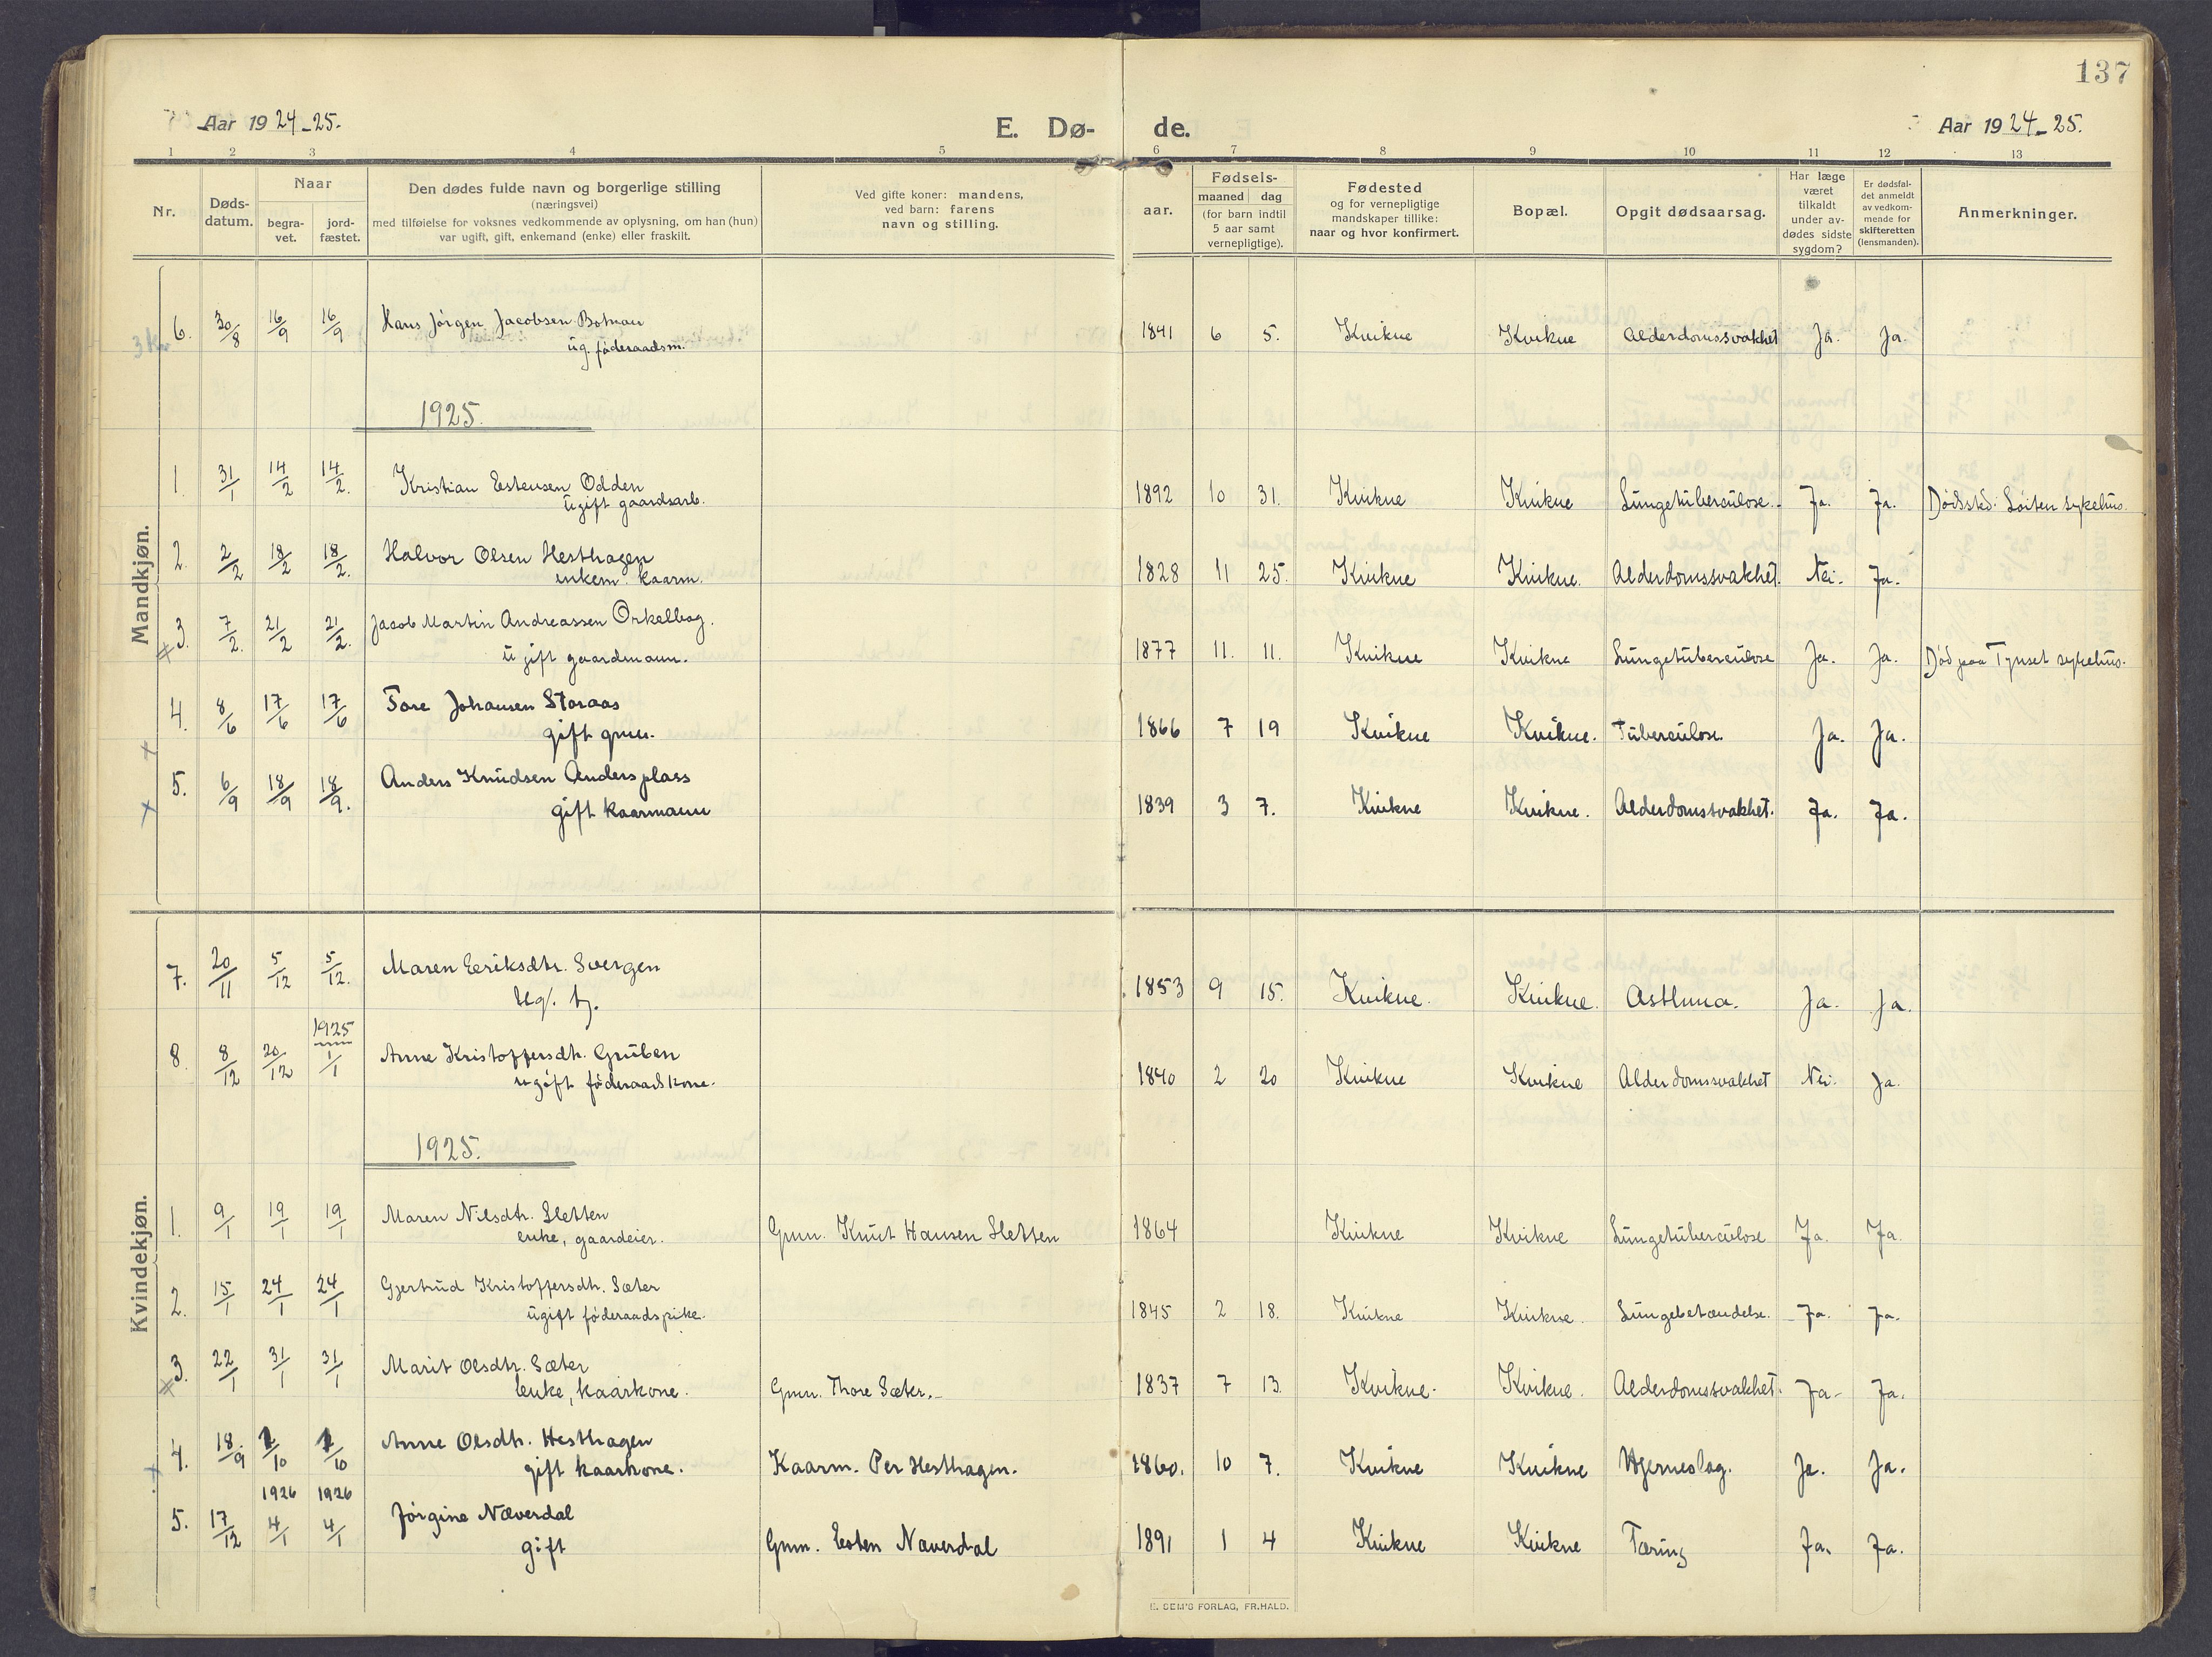 137
Aar 1924-25.
E. Dø-
de.
Aar 1924-25.
1 2 3 4 5 6 7 8 9 10 11 12 13
Nr.
Døds-
datum.
Naar
begra-
vet.
jord-
fæstet.
Den dødes fulde navn og borgerlige stilling
(næringsvei)
med tilføielse for voksnes vedkommende av oplysning, om han (hun)
var ugift, gift, enkemand (enke) eller fraskilt.
Ved gifte koner: mandens,
ved barn: farens
navn og stilling.
aar.
Fødsels-
maaned dag
(for barn indtil
5 aar samt
vernepligtige).
Fødested
og for vernepligtige
mandskaper tillike:
naar og hvor konfirmert.
Bopæl.
Opgit dødsaarsag.
Har læge
været
tilkaldt
under av-
dødes sidste
sygdom?
Er dødsfal-
det anmeldt
av vedkom-
mende for
skifteretten
(lensmanden).
Anmerkninger.
Mandkjøn.
6. 30/8 16/9 16/9 Hans Jørgen Jacobsen 1841 6 5. Kvikne Kvikne Alderdomssvakhet Ja. Ja.
ug. føderaadsm.
1925.
1. 31/1 14/2 14/2. Kristian Estensen Odden 1892 10 31. Kvikne Kvikne Lungetuberculose. Ja. Ja. Dødssted: Løiten sykehus.
ugift gaardsarb.
2. 2/2 18/2 18/2. Halvor Olsen Hesthagen 1828 11 25. Kvikne Kvikne. Alderdomssvakhet. Nei. Ja.
enkem. kaarm.
3. 7/2. 21/2 21/2. Jacob Martin Andreassen Orkelbog. 1877 11. 11. Kvikne Kvikne Lungetuberculose Ja. Ja. Død paa Tynset sykehus.
ugift gaardmann.
4. 8/6 17/6 17/6 Tore Johansen Storaas 1866 7 19 Kvikne Kvikne. Tuberculose. Ja. Ja.
gift gmn.
5. 6/9 18/9 18/9. Anders Knudsen Andersplass 1839 3 7. Kvikne Kvikne. Alderdomssvakhet. Ja. Ja.
gift kaarmann
Kvindekjøn.
7. 20/11 5/12 5/12. Maren Eeriksdtr. Svergen 1853 9 15. Kvikne. Kvikne. Asthma. Ja. Ja.
Ug. tj.
1925
8. 8/12 20/12 1/1 Anne Kristoffersdtr. Gruben 1840 2 20 Kvikne Kvikne Alderdomssvakhet Nei. Ja.
ugift føderaadskone.
1925.
1. 9/1 19/1 19/1 Maren Nilsdtr. Sletten Gmn. Knut Hansen Sletten 1864 Kvikne Kvikne Lungetuberculose Ja. Ja.
enke, gaardeier.
2. 15/1 24/1 24/1 Gjertrud Kristoffersdtr. Sæter 1845 2 18. Kvikne Kvikne. Lungebetændelse. Ja. Ja.
ugift føderaadspike.
3. 22/1 31/1 31/1 Marit Olsdtr. Sæter Gmn. Thore Sæter. 1837 7 13. Kvikne. Kvikne. Alderdomssvakhet. Ja Ja.
Enke, kaarkone.
4. 18./9 1/10 1/10 Anne Olsdtr. Hesthagen Kaarm. Per Hesthagen. 1860. 10 7. Kvikne Kvikne Hjerneslag. Ja. Ja.
gift kaarkone.
1926 1926
5. 17/12 4/1 4/1 Jørgine Næverdal Gmn. Esten Næverdal 1891 1 4 Kvikne Kvikne Tæring Ja. Ja.
gift
E. SEM'S FORLAG, FR.HALD.